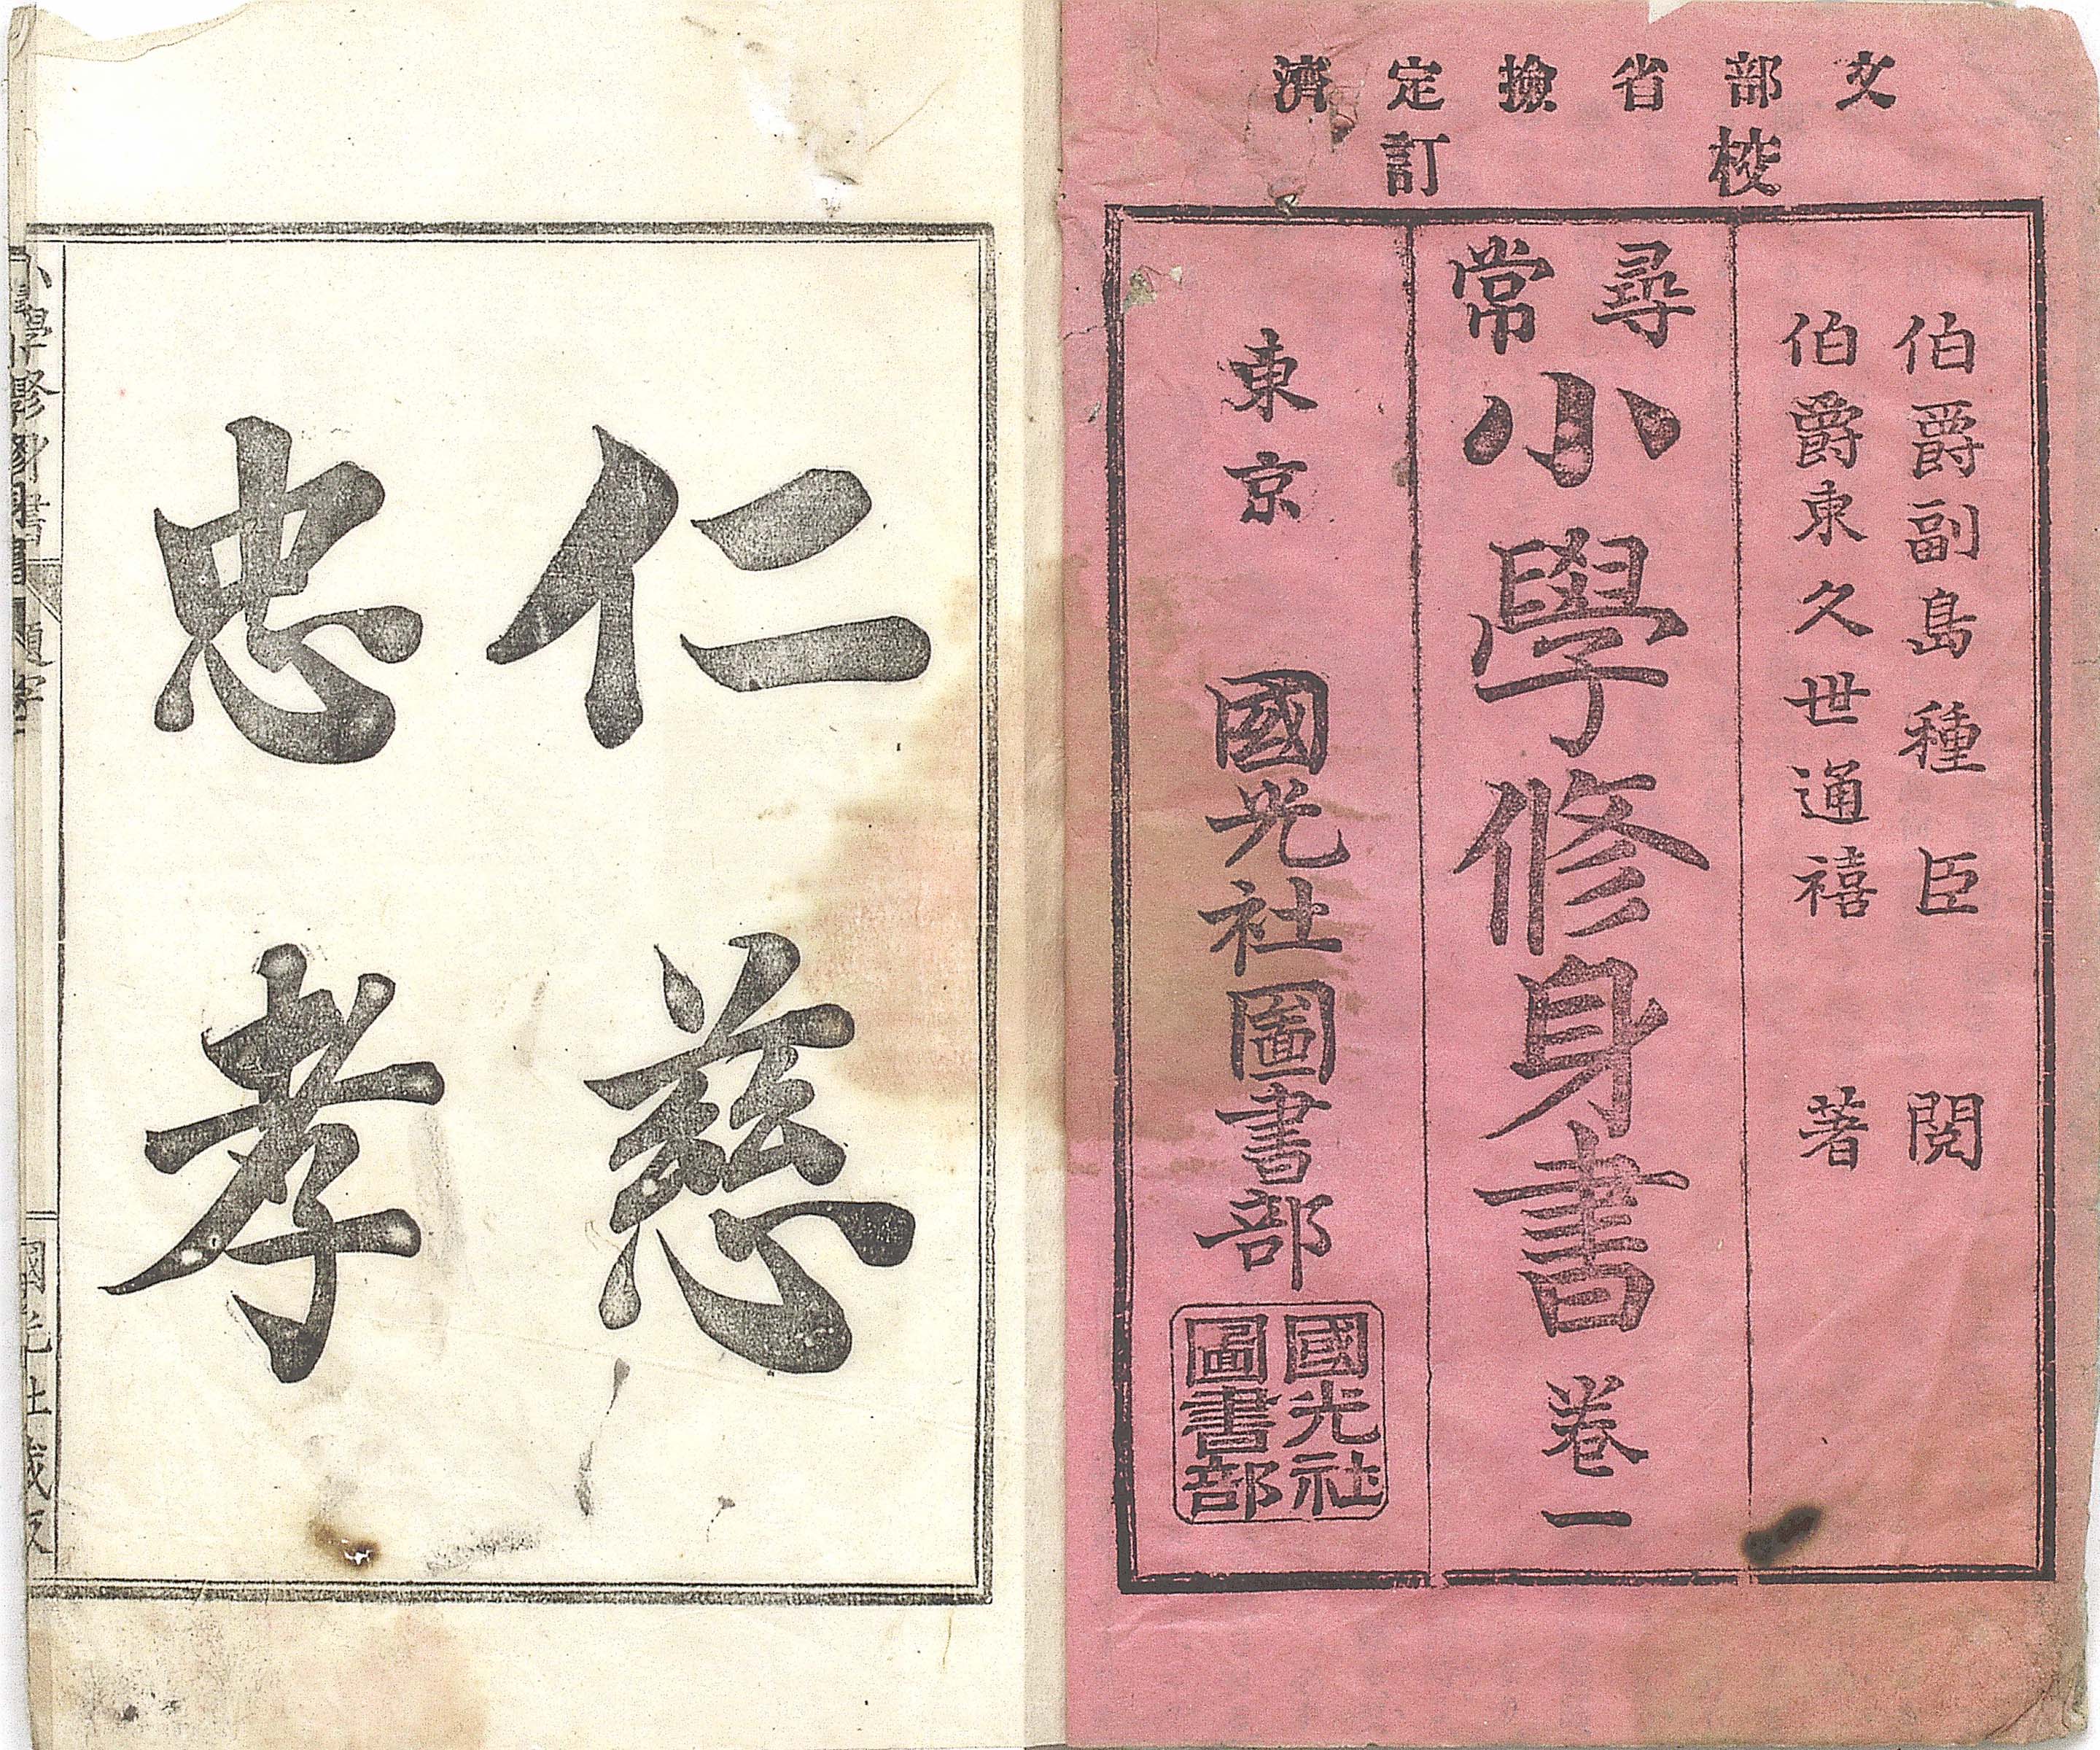 文部省撿定濟
校訂
伯爵副島種臣 閱
伯爵東久世通禧 著
尋常
小學修身書 卷一
東京 國光社圖書部
國光社
圖書部
仁慈
忠孝
小學修身書 題字 國光社藏版